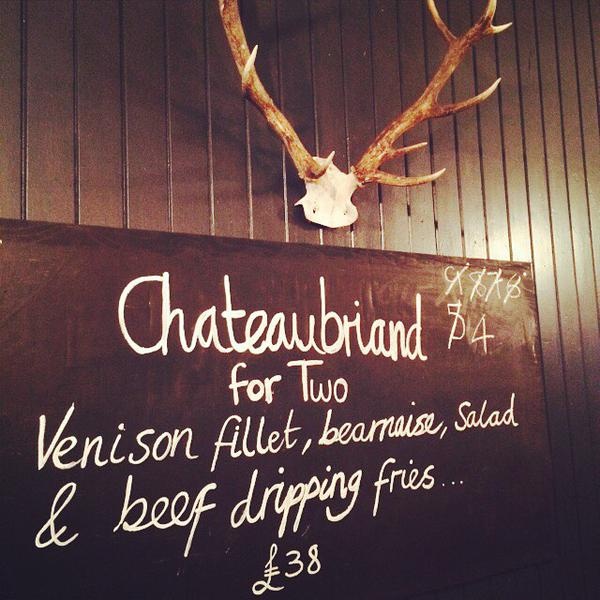 Chateaubriand
4
for Two
Venison fillet, bearnaise, Salad
& beef dripping fries...
£38